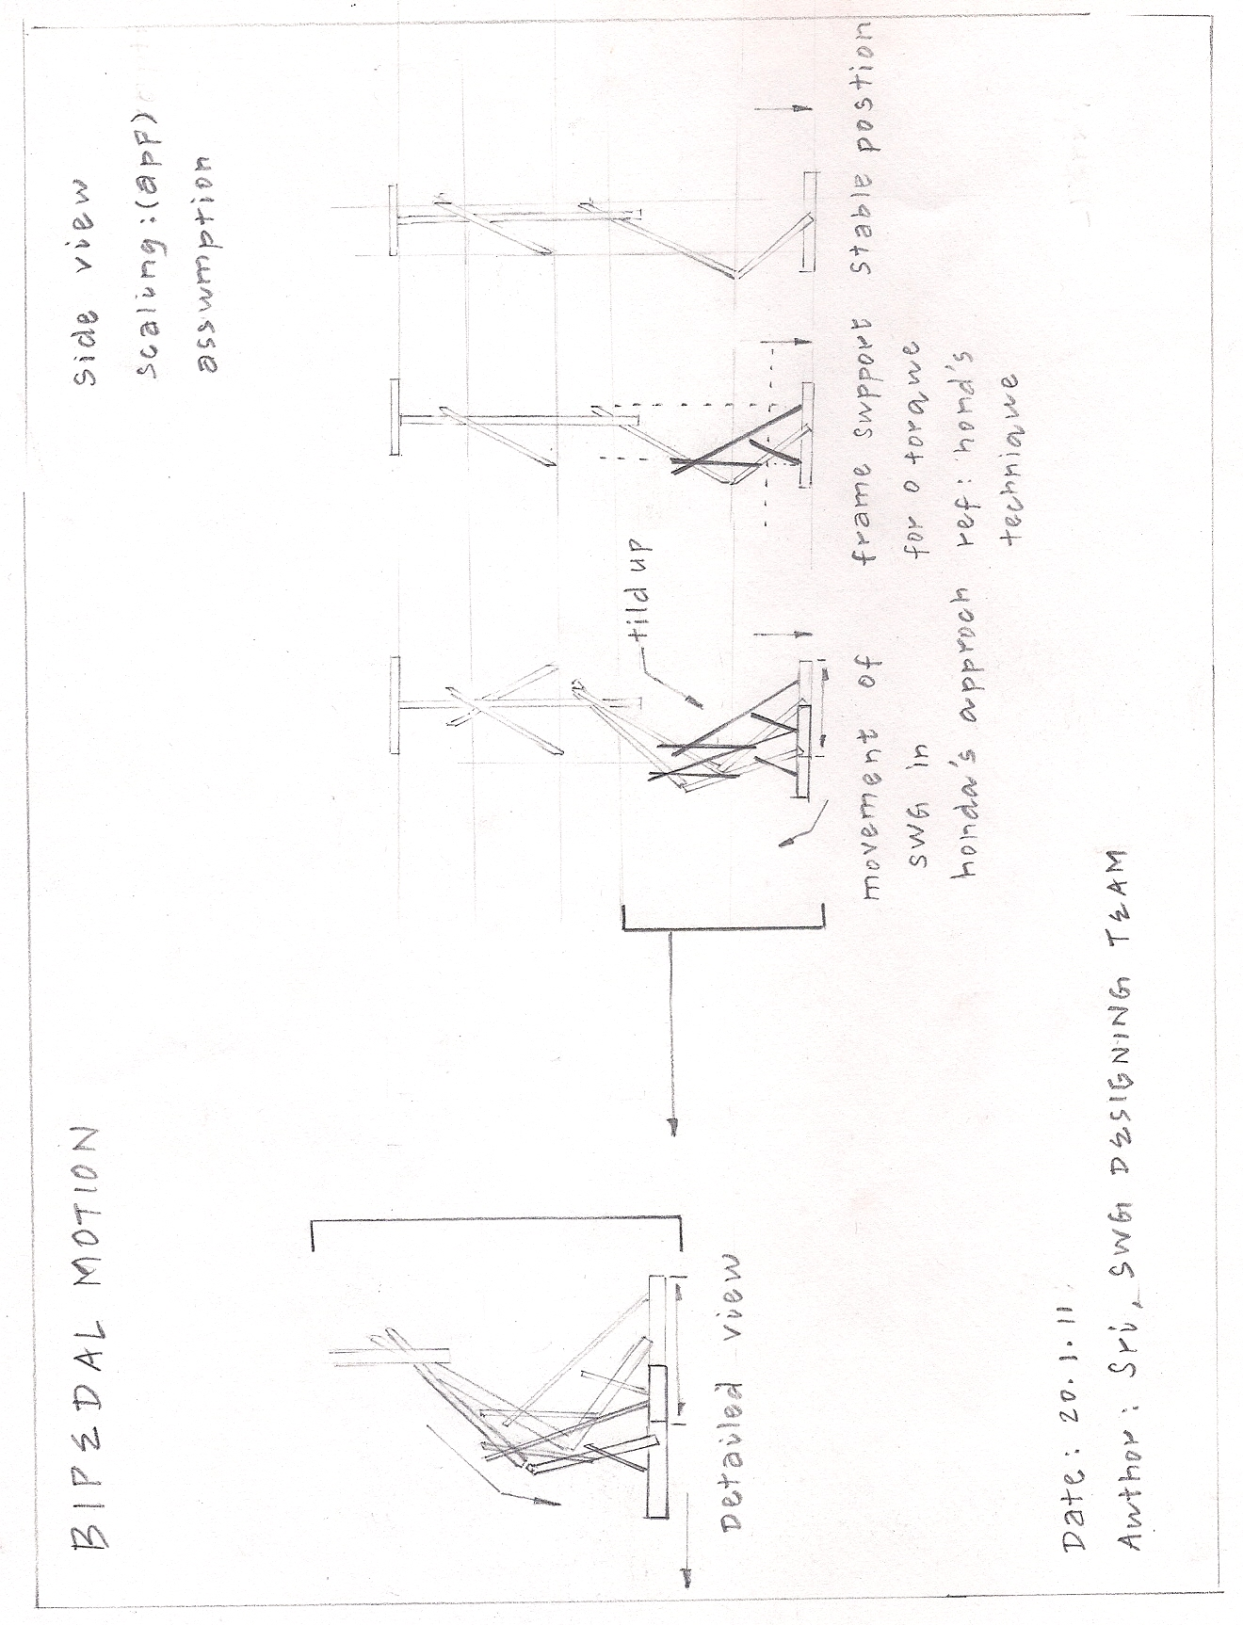 BIPEDAL MOTION
Side view
scaling:(app)
assumption
tild up
movement of
SWG in
honda's approch
frame support
for 0 torque
ref: hond's
technique
stable postion
Detailed view
Date: 20.1.11
Author: Sri, SWG DESIGNING TEAM